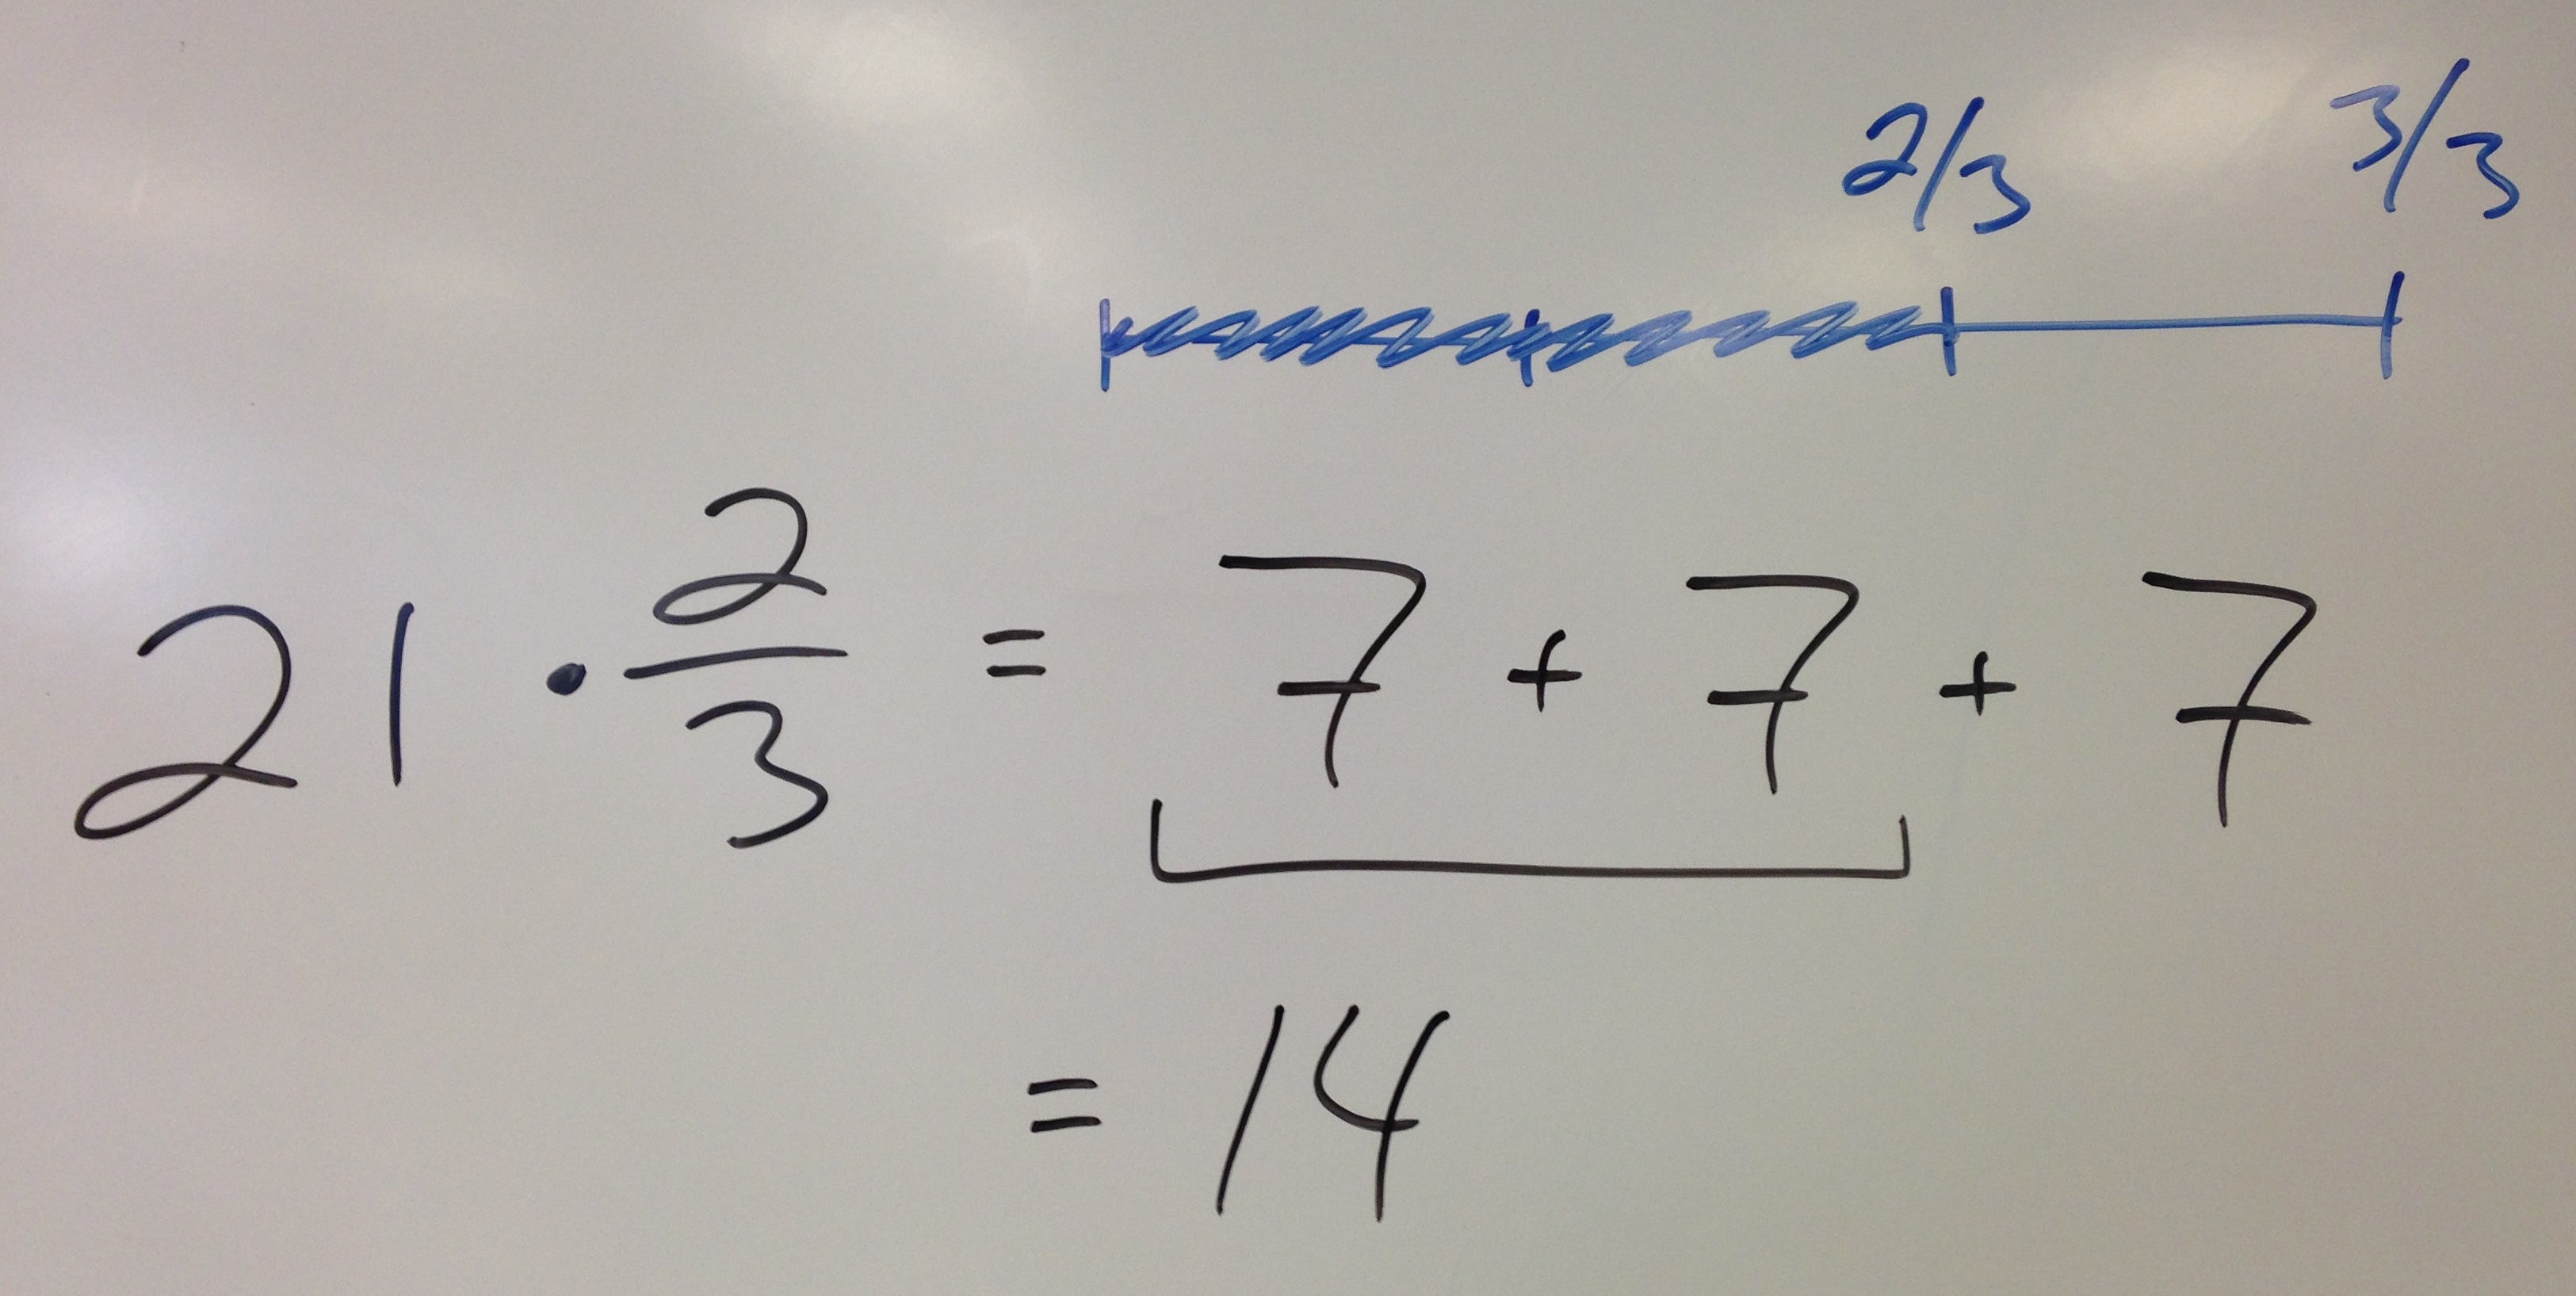 2/3 3/3
21 · 2/3 = 7 + 7 + 7
= 14